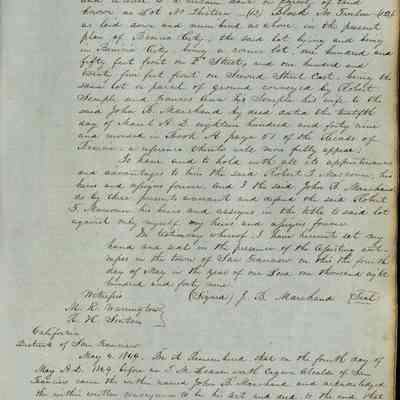 known as Lot No Thirteen (13) Block No Twelve (12)
as laid down and numbered as above in the present
plan of Benicia City; the said lot lying and being
in Benicia City, being a corner lot, one hundred and
fifty feet front on Street, and one hundred and
twenty five feet front on Second Street East, being the
same lot or parcel of ground conveyed by Robert
Semple and Frances Ann his Semple his wife to the
said John B. Marchand by deed dated the twelfth
day of A.D. eighteen hundred and forty nine
and recorded in Book A page 51 of the Alcalde of
Benicia a reference thereto will more fully appear.
To have and to hold with all its appurtenances
and advantages to him the said Robert F. his
heirs and assigns forever. And I the said John B. Marchand
do by these presents warrant and defend the said Robert
F. his heirs and assigns in the title to said lot
against only myself my heirs and assigns forever
In testimony whereof I have hereunto set my
hand and seal in the presence of the
in the town of San Francisco on this the fourth
day of May in the year of our Lord one thousand eight
hundred and forty nine
Witnesses (Signed) J. B. Marchand (Seal)
M. R. Warrington
R. H.
California
District of San Francisco
May 4. 1849. Be it Remembered that on the fourth day of
May A.D. 1849, before me T. M. Leavenworth Alcalde of San
Francisco came the within named John B Marchand and acknowledged
the within written conveyance to be his act and deed to the end that